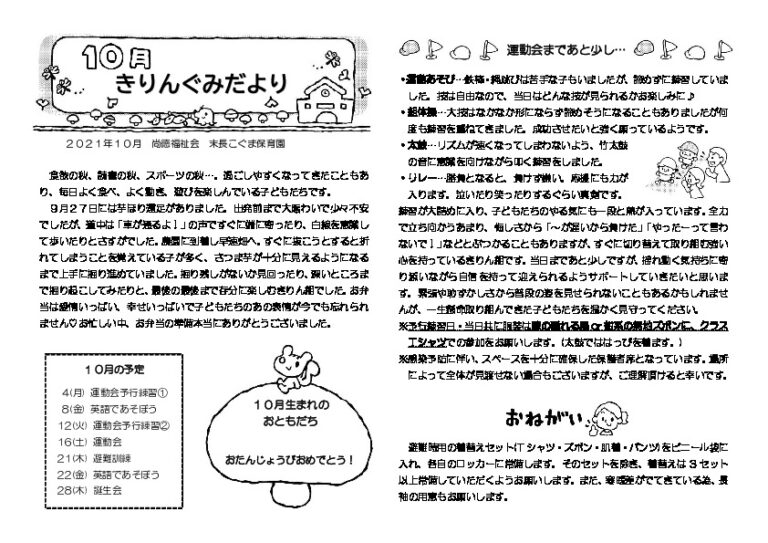 10月
きりんぐみだより
2021年10月　尚徳福祉会　末長こぐま保育園
食欲の秋、読書の秋、スポーツの秋…。過ごしやすくなってきたこともあ
り、毎日よく食べ、よく動き、遊びを楽しんでいる子どもたちです。
９月27日には芋ほり遠足がありました。出発前まで大賑わいで少々不安
でしたが、道中は「車が通るよ！」の声ですぐに端に寄ったり、白線を意識し
て歩いたりとさすがでした。農園に到着し早速畑へ。すぐに抜こうとすると折
れてしまうことを覚えている子が多く、さつま芋が十分に見えるようになる
まで上手に掘り進めていました。掘り残しがないか見回ったり、深いところま
で掘り起こしてみたりと、最後の最後まで存分に楽しむきりん組でした。お弁
当は愛情いっぱい、幸せいっぱいで子どもたちのあの表情が今でも忘れられ
ません♡お忙しい中、お弁当の準備本当にありがとうございました。
１０月の予定
4(月) 運動会予行練習①
8(金) 英語であそぼう
12(火) 運動会予行練習②
16(土) 運動会
21(木) 避難訓練
22(金) 英語であそぼう
28(木) 誕生会
１０月生まれの
おともだち
おたんじょうびおめでとう！
運動会まであと少し…
・運動あそび…鉄棒・縄跳びは苦手な子もいましたが、諦めずに練習していま
した。技は自由なので、当日はどんな技が見られるかお楽しみに♪
・組体操…大技はなかなか形にならず諦めそうになることもありましたが何
度も練習を重ねてきました。成功させたいと強く願っているようです。
・太鼓…リズムが速くなってしまわないよう、竹太鼓
の音に意識を向けながら叩く練習をしました。
・リレー…勝負となると、負けず嫌い。応援にも力が
入ります。泣いたり笑ったりするぐらい真剣です。
練習が大詰めに入り、子どもたちのやる気にも一段と熱が入っています。全力
で立ち向かうあまり、悔しさから「〜が遅いから負けた」「やったーって言わ
ないで！」などとぶつかることもありますが、すぐに切り替えて取り組める強い
心を持っているきりん組です。当日まであと少しですが、揺れ動く気持ちに寄
り添いながら自信を持って迎えられるようサポートしていきたいと思いま
す。緊張や恥ずかしさから普段の姿を見せられないこともあるかもしれませ
んが、一生懸命取り組んできた子どもたちを温かく見守ってください。
での参加をお願いします。（太鼓でははっぴを着ます。）
※感染予防に伴い、スペースを十分に確保した保護者席となっています。場所
によって全体が見渡せない場合もございますが、ご理解頂けると幸いです。
おねがい
避難時用の着替えセット(Tシャツ・ズボン・肌着・パンツ)をビニール袋に
入れ、各自のロッカーに常備します。そのセットを除き、着替えは３セット
以上常備していただくようお願いします。また、寒暖差がでてきている為、長
袖の用意もお願いします。